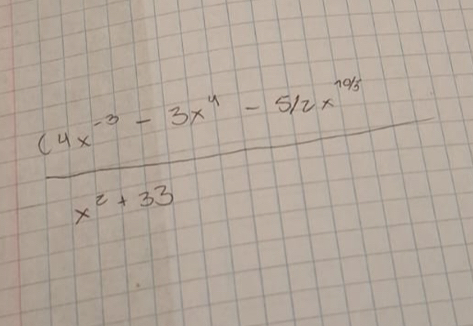 (4x⁻³ - 3x⁴ - 5/2x¹⁰/⁵
x² + 33